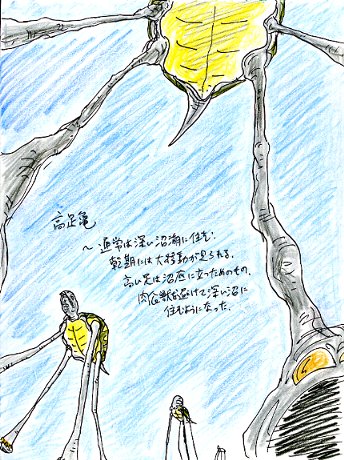 高足亀
〜 通常は深い沼湖に住む.
乾期には大移動が見られる.
高い足は沼底に立つためのもの.
肉食獣を避けて深い沼に
住むようになった.